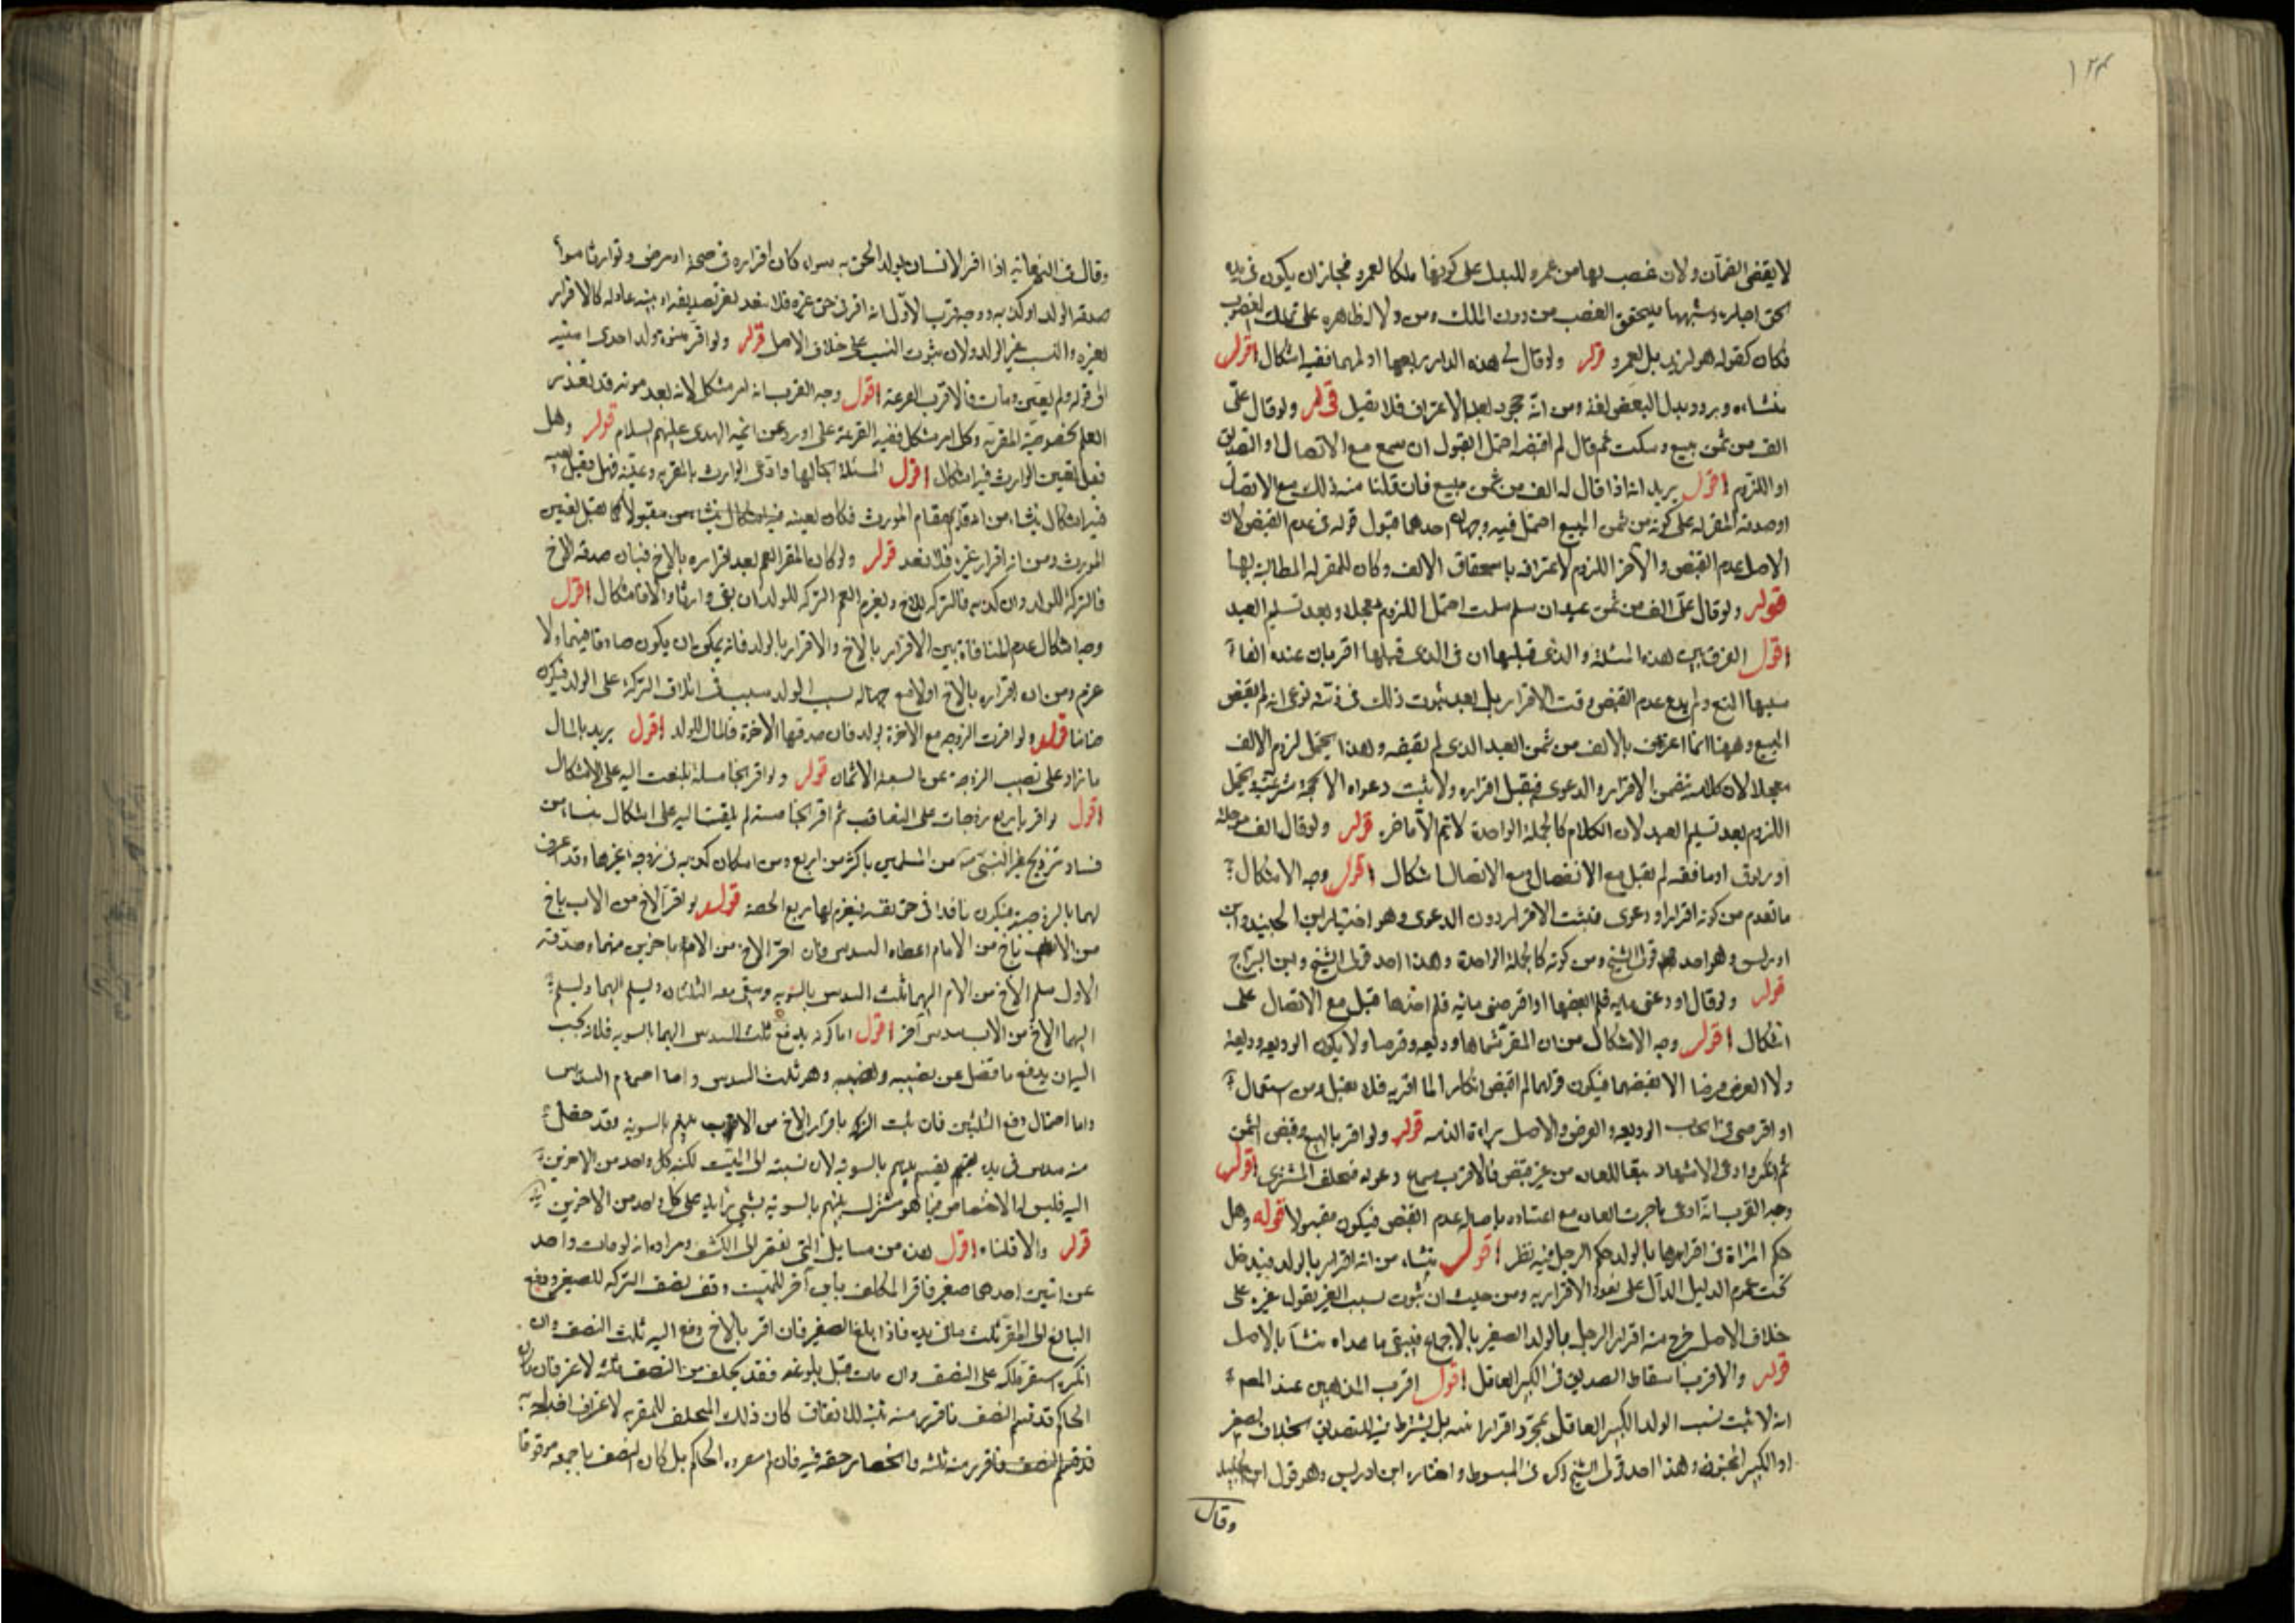 ١٢٣
لا يقتضي الضمان ولان غصبها من عمرو للبدل على كونها ملكا لعمرو فجاز ان يكون في يده
بحق اجارة وشبهها فيتحقق الغصب من دون الملك ومن ولالة ظاهره على تملك المغصوب
فكان كقوله هو لزيد بل لعمرو قوله ولو قال لي هذه الدار ربعها او لهما ففيه اشكال اقول
ينشاء بدل البعض لغة ومن انه جحود بعد الاعتراف فلا يقبل قوله ولو قال علي
الف من ثمن مبيع وسكت ثم قال لم اقبضه احتمل القبول ان سمع مع الاتصال او التصديق
او اللزوم اقول يريد انه اذا قال له الف من ثمن مبيع فان قلنا منه ذلك مع الاتصال
او صدقه المقر له على كونه من ثمن المبيع احتمل فيه وجهان احدهما قبول قوله في عدم القبض لان
الاصل عدم القبض والآخر اللزوم لاعترافه باستحقاق الالف وكان للمقر له المطالبة بها
قوله ولو قال علي الف من ثمن عبد ان سلم سلمت احتمل اللزوم معجلا وبعد تسليم العبد
اقول الفرق بين هذه المسئلة والذي قبلها ان في الذي قبلها اقر بان عنده الفا
سببها البيع ولم يدع عدم القبض وقت الاقرار بل بعد ثبوت ذلك في ذمته ادعى انه لم يقبض
المبيع وههنا انما اعترف بالالف من ثمن العبد الذي لم يقبضه ولهذا يحتمل لزوم الالف
معجلا لان كلامه تضمن الاقرار والدعوى فيقبل اقراره ولا يثبت دعواه الا بحجة شرعية ويحتمل
اللزوم بعد تسليم العبد لان الكلام كالجملة الواحدة لا يتم الا بآخره قوله ولو قال الف مؤجلة
او زيوف او ناقصة لم يقبل مع الانفصال ومع الاتصال اشكال اقول وجه الاشكال
ما تقدم من كونه اقرارا ودعوى فيثبت الاقرار دون الدعوى وهو اختيار ابن الجنيد وابن
ادريس وهو احد قولي الشيخ ومن كونه كالجملة الواحدة وهذا احد قولي الشيخ وابن البراج
قوله ولو قال اودعني مائة فلم اقبضها او اقرضني مائة فلم اخذها قبل مع الاتصال على
اشكال اقول وجه الاشكال من ان المقر سماها وديعة وقرضا ولا يكون الوديعة وديعة
ولا القرض قرضا الا بقبضهما فيكون قوله لم اقبض انكارا لما اقر به فلا يقبل ومن استعمال
او اقرضني في ايجاب الوديعة والقرض والاصل براءة الذمة قوله ولو اقر بالبيع وقبض الثمن
ثم انكر وادعى الاشهاد تبعا للعادة من غير قبض فالاقرب سماع دعواه فيحلف المشتري اقول
وجه القرب انه ادعى ما جرت العادة مع اعتضاده باصالة عدم القبض فيكون مقبولا قوله وهل
حكم المرأة في اقرارها بالولد حكم الرجل فيه نظر اقول ينشاء من انه اقرار بالولد فيدخل
تحت عموم الدليل الدال على نفوذ الاقرار به ومن حيث ان ثبوت نسب الغير بقول غيره على
خلاف الاصل خرج منه اقرار الرجل بالولد الصغير بالاجماع فيبقى ما عداه بالاصل
قوله والاقرب اسقاط التصديق في الكبير العاقل اقول اقرب المذهبين عند المص
انه لا يثبت نسب الولد الكبير العاقل بمجرد اقرار ابيه بل يشترط فيه التصديق بخلاف الصغير
او الكبير المجنون وهذا احد قولي الشيخ ذكره في المبسوط واختاره ابن ادريس وهو قول ابن الجنيد
وقال
وقال في النهاية اذا اقر الانسان بولد الحق به سواء كان اقراره في صحة او مرض وتوارثا سواء
صدقه الولد او كذبه ووجه قرب الاول انه اقر في حق غيره فلا ينفذ بغير تصديقه او بينة عادلة كالاقرار
لغيره والنسب غير الولد ولان ثبوت النسب على خلاف الاصل قوله ولو اقر ببنوة ولد احدى امتيه
الى قوله ولم يعين ومات فالاقرب القرعة اقول وجه القرب انه امر مشكل لانه بعد موته قد تعذر
العلم بخصوصية المقر به وكل امر مشكل ففيه القرعة على ورد عن ائمة الهدى عليهم السلام قوله وهل
يقبل تعيين الوارث فيه اشكال اقول المسئلة بحالها وادعى الوارث بالمقر به وعينه فهل يقبل
فيه اشكال ينشاء من قيامه مقام المورث فكان تعيينه مقبولا كما يقبل تعيين
المورث ومن انه اقرار غيره فلا ينفذ قوله ولو كان المقر العم بعد اقراره بالاخ فان صدقه الاخ
فالتركة للولد وان كذبه فالتركة للاخ ويغرم العم التركة للولد ان نفى وارثا والا فاشكال اقول
وجه اشكال عدم المنافاة بين الاقرار بالاخ والاقرار بالولد فانه يمكن ان يكون صادقا فيهما ولا
غرم ومن ان اقراره بالاخ اولا مع جهالة نسب الولد سبب في اتلاف التركة على الولد فيكون
ضامنا قوله ولو اقرت الزوجة مع الاخوة بولد فان صدقها الاخوة فالمال للولد اقول يريد بالمال
ما زاد على نصيب الزوجة عن السبعة الاثمان قوله ولو اقر بخامسة لم يلتفت اليه على الاشكال
اقول لو اقر باربع زوجات على التعاقب ثم اقر بخامسة لم يلتفت اليه على اشكال ينشاء من
فساد تزويج غير النبي من المسلمين باكثر من اربع ومن امكان كذبه في زوجية غيرها وقد اعترف
لهما بالزوجية فيكون نافذا في حق نفسه فيغرم لها ربع الحصة قوله لو اقر الاخ من الاب باخ
من الام اعطاه السدس فان اقر الاخ من الام باخوين منهما وصدقه
الاول سلم الاخ من الام اليهما ثلث السدس بالسوية ويبقى معه الثلثان ويسلم اليهما
اليهما الاخ من الاب سدس آخر اقول اما كونه يدفع ثلث السدس اليهما بالسوية فلانه يجب
ان يدفع ما فضل عن نصيبه وهو ثلث السدس واما
واما احتمال دفع الثلثين فان باقرار الاخ من الاب بالسوية فقد حصل
منه سدس في يد بعضهم يقسم بينهم بالسوية لان نسبته الى الميت لكنه كل واحد من الاخرين
اليه فليس له الاختصاص فيما هو مشترك بينهم بالسوية بشيء زايد على كل واحد من الاخرين
قوله والا قلنا اقول هذه من مسايل التي تفتقر الى الكشف ومراده انه لو مات واحد
عن ابنين احدهما صغير فاقر المكلف بابن آخر للميت وقف نصف التركة للصغير ودفع
البالغ الى المقر ثلث ما في يده فاذا بلغ الصغير فان اقر بالاخ دفع اليه ثلث النصف وان
انكره استقر ملكه على النصف وان مات قبل بلوغه فقد تخلف من النصف ثلثه لاعترافان كان
الحاكم قد قسم النصف كان ذلك المتخلف للمقر به لاعتراف
قد قسم النصف وانحصار حقه فيه فان لم يفرده الحاكم بل كان النصف باجمعه موقوفا